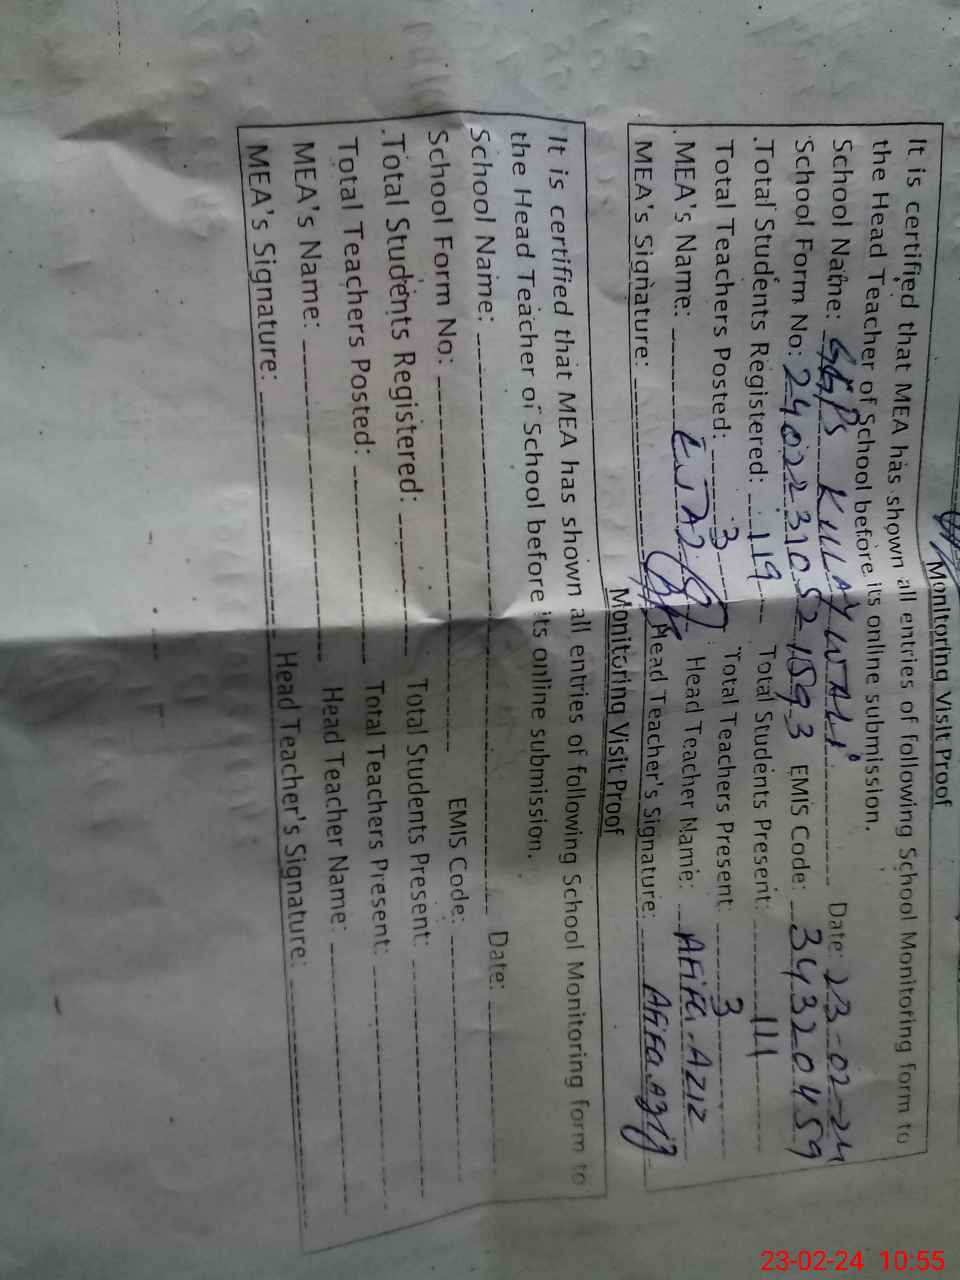 Monitoring Visit Proof
It is certified that MEA has shown all entries of following School Monitoring form to
the Head Teacher of School before its online submission.
School Name: GGPS KILLAY WALI Date: 23-02-24
School Form No: 24022310521593 EMIS Code: 34320459
Total Students Registered: 119 Total Students Present: 111
Total Teachers Posted: 3 Total Teachers Present: 3
MEA's Name: Head Teacher Name: AFIFA.AZIZ
MEA's Signature: Head Teacher's Signature: AFIFA.AZIZ
Monitoring Visit Proof
It is certified that MEA has shown all entries of following School Monitoring form to
the Head Teacher of School before its online submission.
School Name: Date:
School Form No: EMIS Code:
Total Students Registered: Total Students Present:
Total Teachers Posted: Total Teachers Present:
MEA's Name: Head Teacher Name:
MEA's Signature: Head Teacher's Signature:
23-02-24 10:55